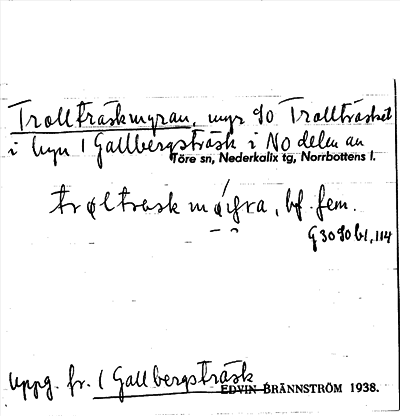 Trollträskmyran, myr SO Trollträsket
i byn 1 Gallbergsträsk i NO delen av
Töre sn, Nederkalix tg, Norrbottens l.
bf. fem.
G3090 b1, 114
Uppg. fr. 1 Gallbergsträsk
EDVIN BRÄNNSTRÖM 1938.